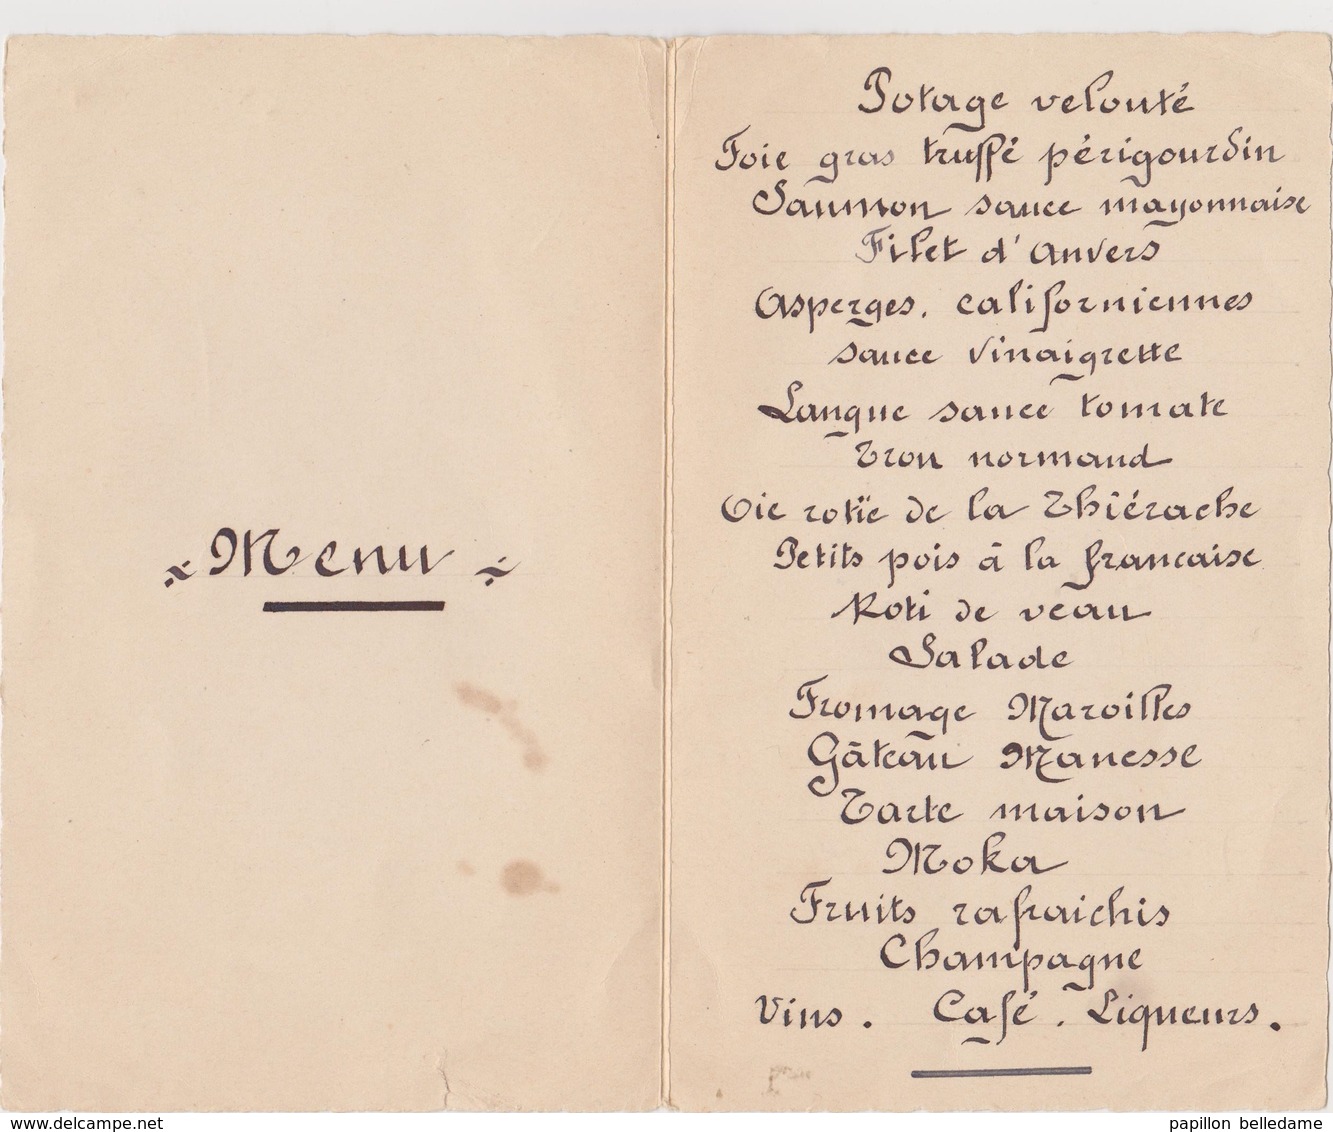 Menu
Potage velouté
Foie gras truffé périgourdin
Saumon sauce mayonnaise
Filet d'Anvers
Asperges. californiennes
sauce vinaigrette
Langue sauce tomate
Tron normand
Oie rotïe de la Thiérache
Petits pois à la francaise
Roti de veau
Salade
Fromage Maroilles
Gâteau Manesse
Tarte maison
Moka
Fruits rafraichis
Champagne
Vins. Café. Liqueurs.
delcampe.net
papillon belledame